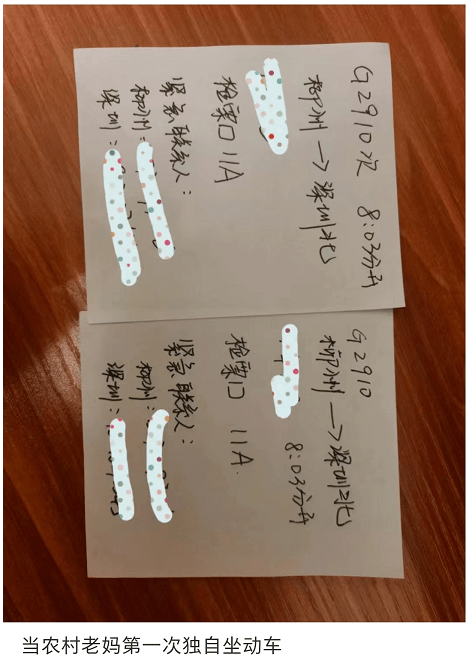 G2910次 8:03分开
柳州→深圳北
检票口 11A
紧急联系人：
柳州：
深圳：
G2910
柳州→深圳北
8:03分开
检票口 11A
紧急联系人：
柳州：
深圳：
当农村老妈第一次独自坐动车